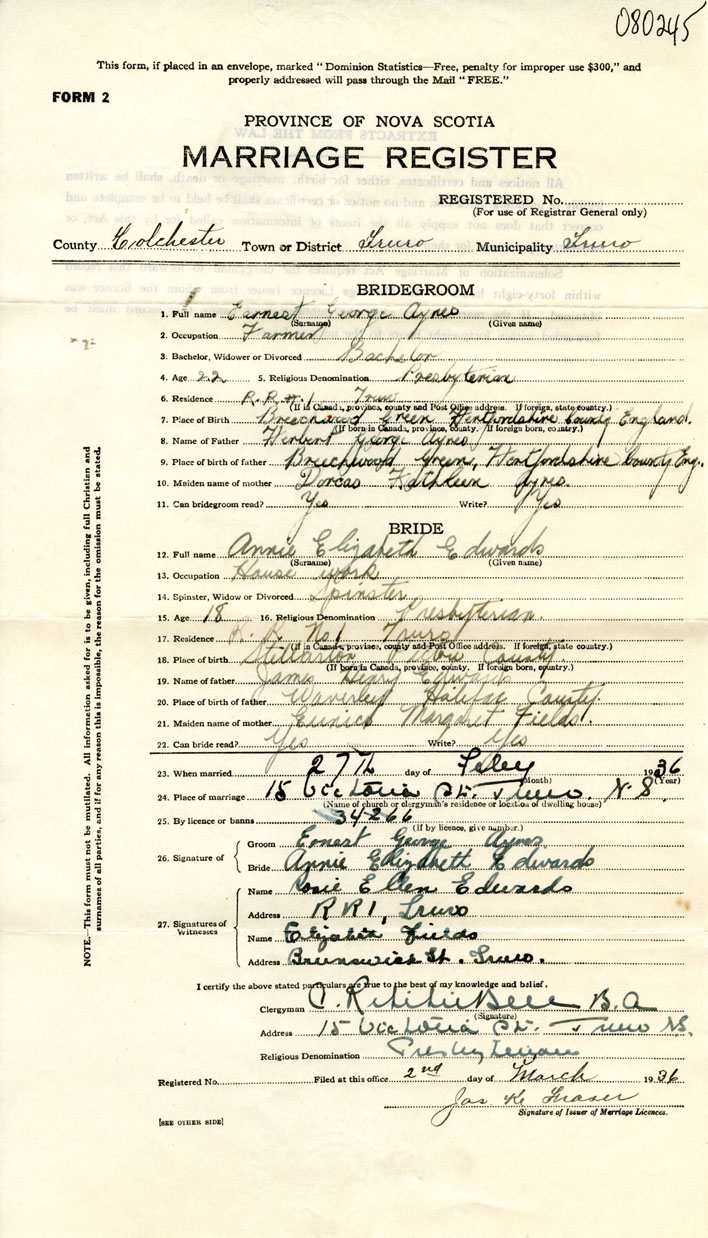 080245
This form, if placed in an envelope, marked " Dominion Statistics—Free, penalty for improper use $300," and
properly addressed will pass through the Mail " FREE."
FORM 2
PROVINCE OF NOVA SCOTIA
MARRIAGE REGISTER
REGISTERED No.
(For use of Registrar General only)
County Colchester Town or District Truro Municipality Truro
BRIDEGROOM
1. Full name Earnest George Ayres
(Surname) (Given name)
2. Occupation Farmer
3. Bachelor, Widower or Divorced Bachelor
4. Age 22 5. Religious Denomination Presbyterian
6. Residence R.R.#.1 Truro
(If in Canada, province, county and Post Office address. If foreign, state country.)
7. Place of Birth Breechwood Green, Hertfordshire County England.
(If born in Canada, province, county. If foreign born, country.)
8. Name of Father Herbert George Ayres
9. Place of birth of father Breechwood Green, Hertfordshire County Eng.
10. Maiden name of mother Dorcas Kathleen Ayres
11. Can bridegroom read? Yes Write? Yes
BRIDE
12. Full name Annie Elizabeth Edwards
(Surname) (Given name)
13. Occupation House work
14. Spinster, Widow or Divorced Spinster
15. Age 18 16. Religious Denomination Presbyterian.
17. Residence R. R. No 1 Truro
(If in Canada, province, county and Post Office address. If foreign, state country.)
18. Place of birth Stellarton Pictou County.
(If born in Canada, province, county. If foreign born, country.)
19. Name of father James Henry Edwards
20. Place of birth of father Waverley Halifax County.
21. Maiden name of mother Eunice Margaret Fields.
22. Can bride read? Yes Write? Yes
23. When married 27th day of Feby 1936
(Month) (Year)
24. Place of marriage 15 Victoria St. Truro. N.S.
(Name of church or clergyman's residence or location of dwelling house)
25. By licence or banns 34266
(If by licence, give number.)
26. Signature of Groom Ernest George Ayres
Bride Annie Elizabeth Edwards
27. Signatures of Witnesses
Name Rosie Ellen Edwards
Address R R 1, Truro
Name Elizabeth Fields
Address Brunswick St. Truro.
I certify the above stated particulars are true to the best of my knowledge and belief.
Clergyman B.A
(Signature)
Address 15 Victoria St. Truro NS.
Religious Denomination Presbyterian
Registered No. Filed at this office 2nd day of March 1936
Jas K Fraser
Signature of Issuer of Marriage Licences.
[SEE OTHER SIDE]
NOTE.—This form must not be mutilated. All information asked for is to be given, including full Christian and
surnames of all parties, and if for any reason this is impossible, the reason for the omission must be stated.